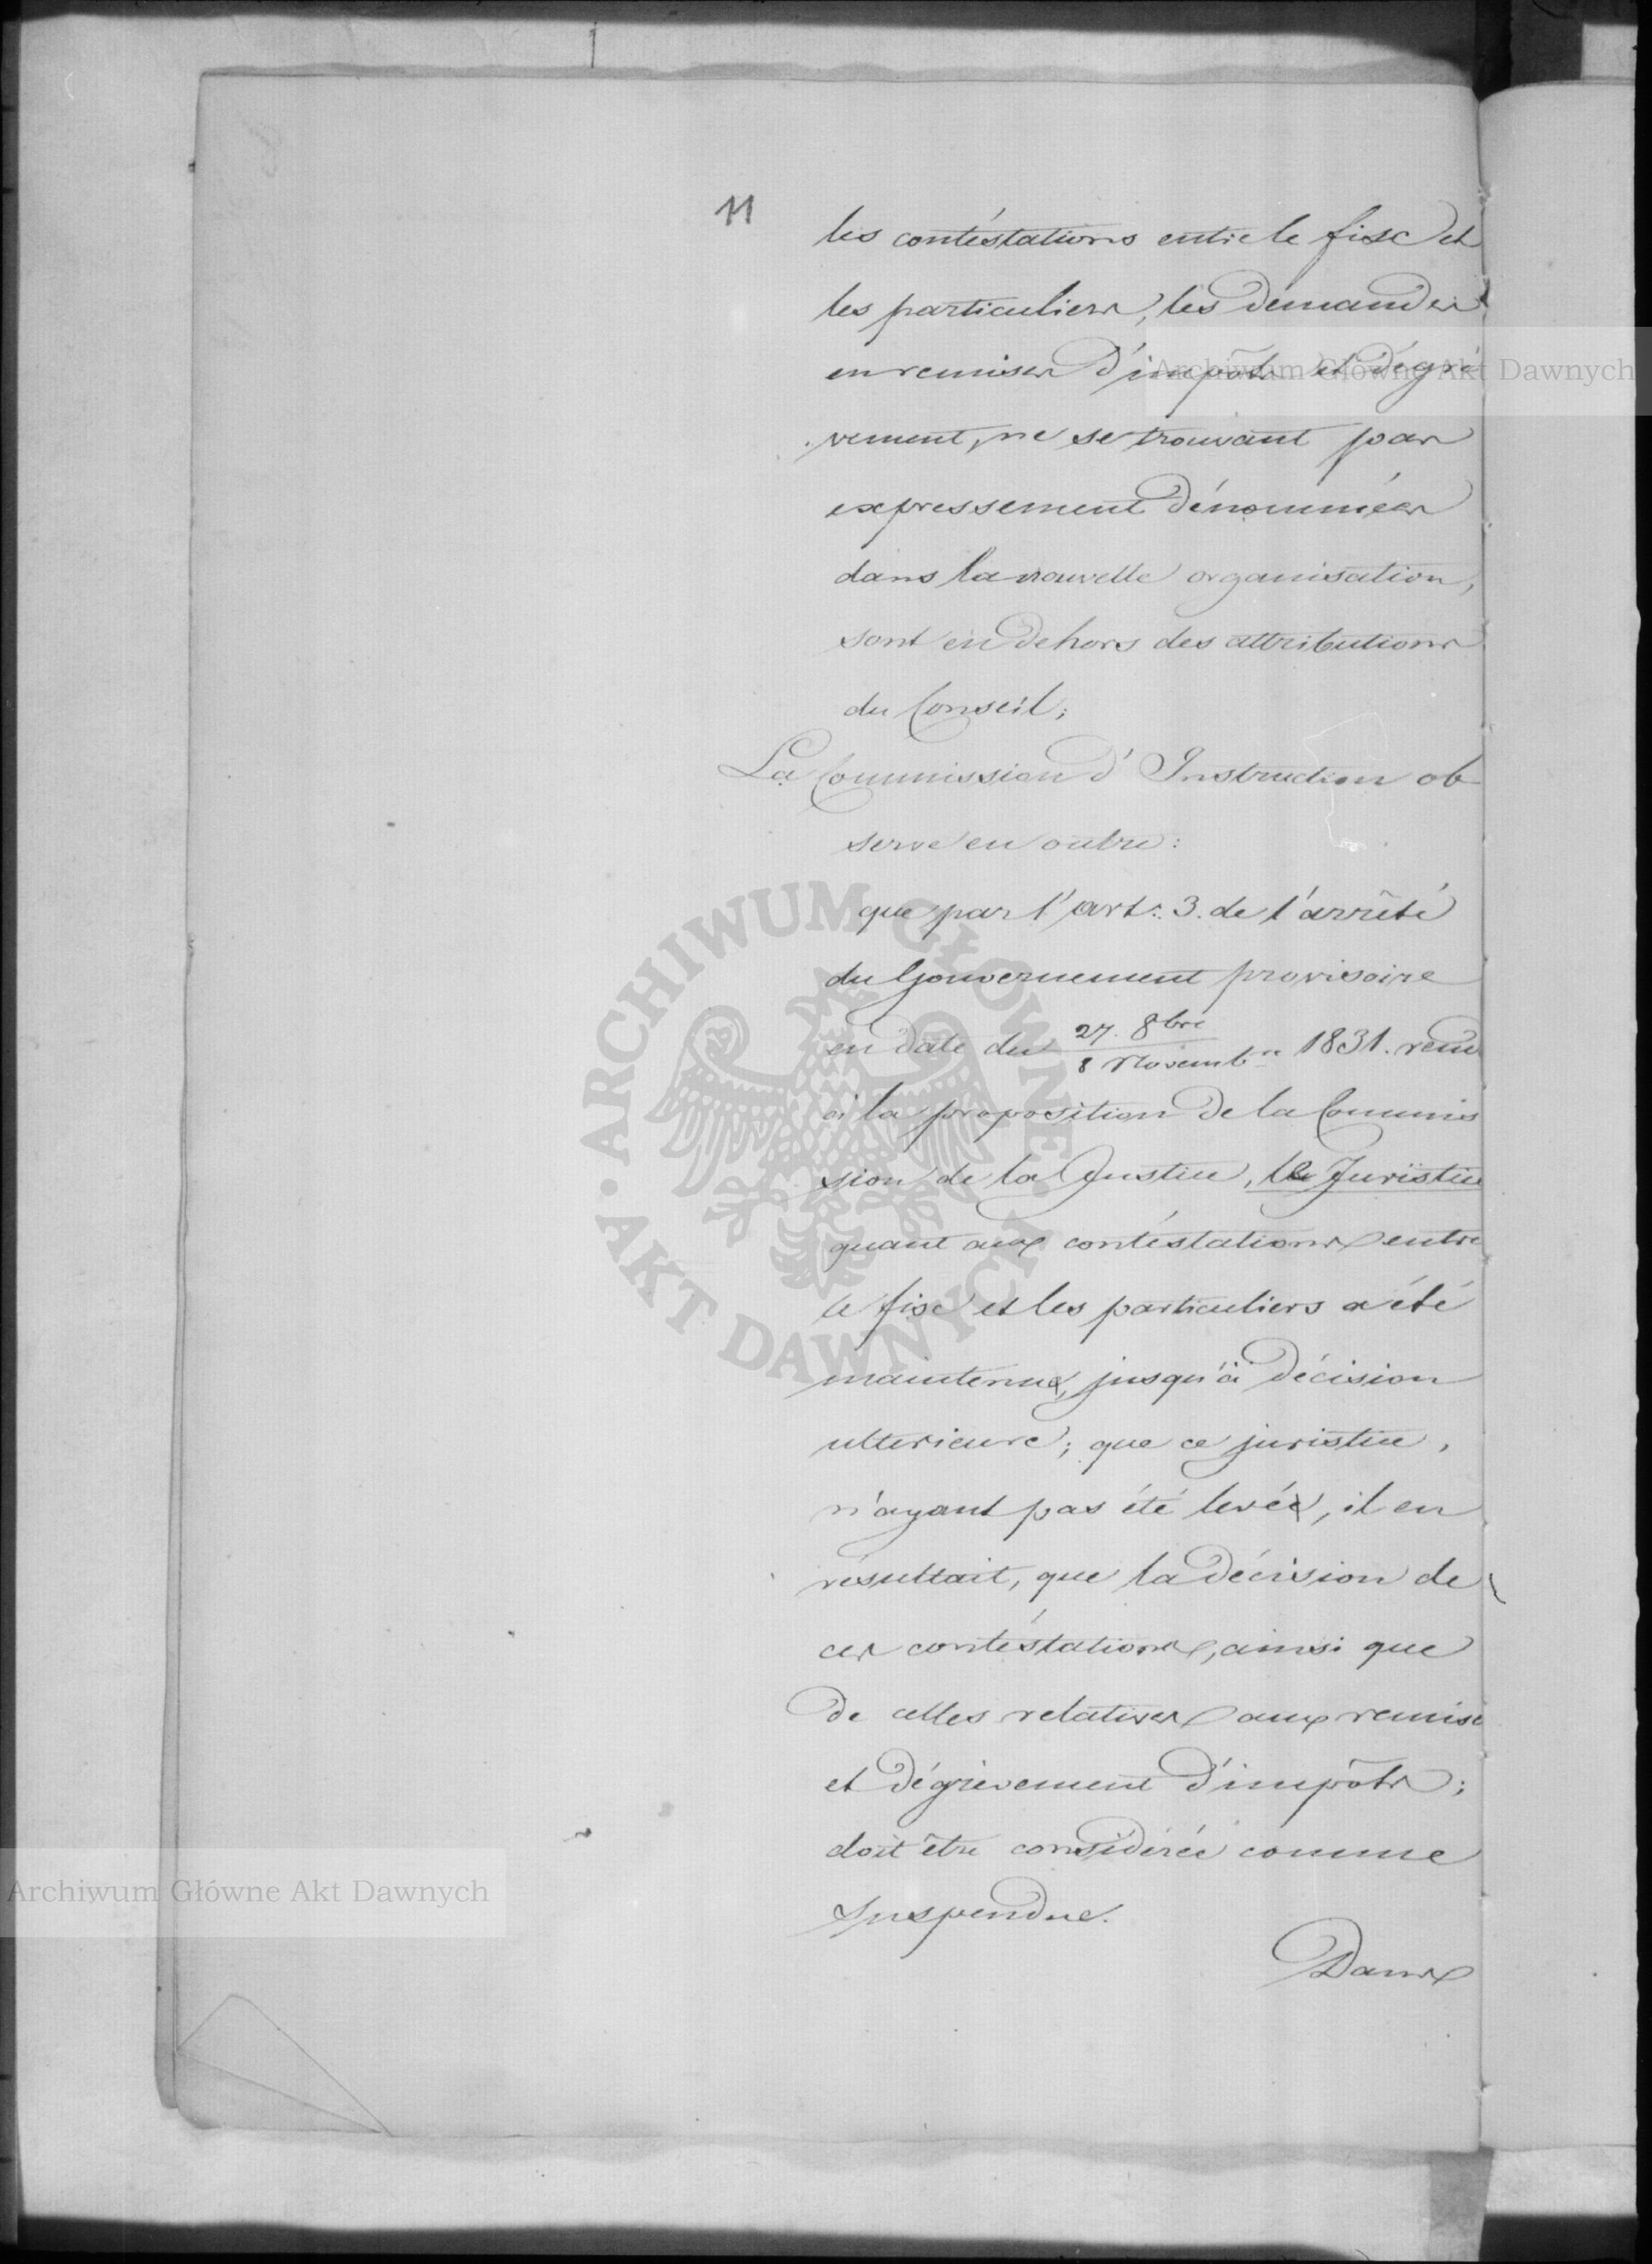 11
les contéstations entre le fisc et
les particuliers, les demandes
en remises d'impôts et dégré
vement, ne se trouvant pas
expressement dénommées
dans la nouvelle organisation,
sont en dehors des attributions
du Conseil;
La Commission d'Instruction ob
serve en outre:
que par l'art: 3. de l'arrêté
du Gouvernement provisoire
en date du 27. 8bre / 8 Novembre 1831. rendu
à la proposition de la Commis
sion de la Justice, le Juristice
quant aux contéstations entre
le fisc et les particuliers a été
maintenu, jusqu'à décision
ulterieure; que ce juristice,
n'ayant pas été levé, il en
résultait, que la décision de
ces contéstations, ainsi que
de celles relatives aux remise
et dégrèvement d'impôts;
doit être considérée comme
suspendue.
Dans
Archiwum Główne Akt Dawnych
Archiwum Główne Akt Dawnych
ARCHIWUM GŁÓWNE AKT DAWNYCH